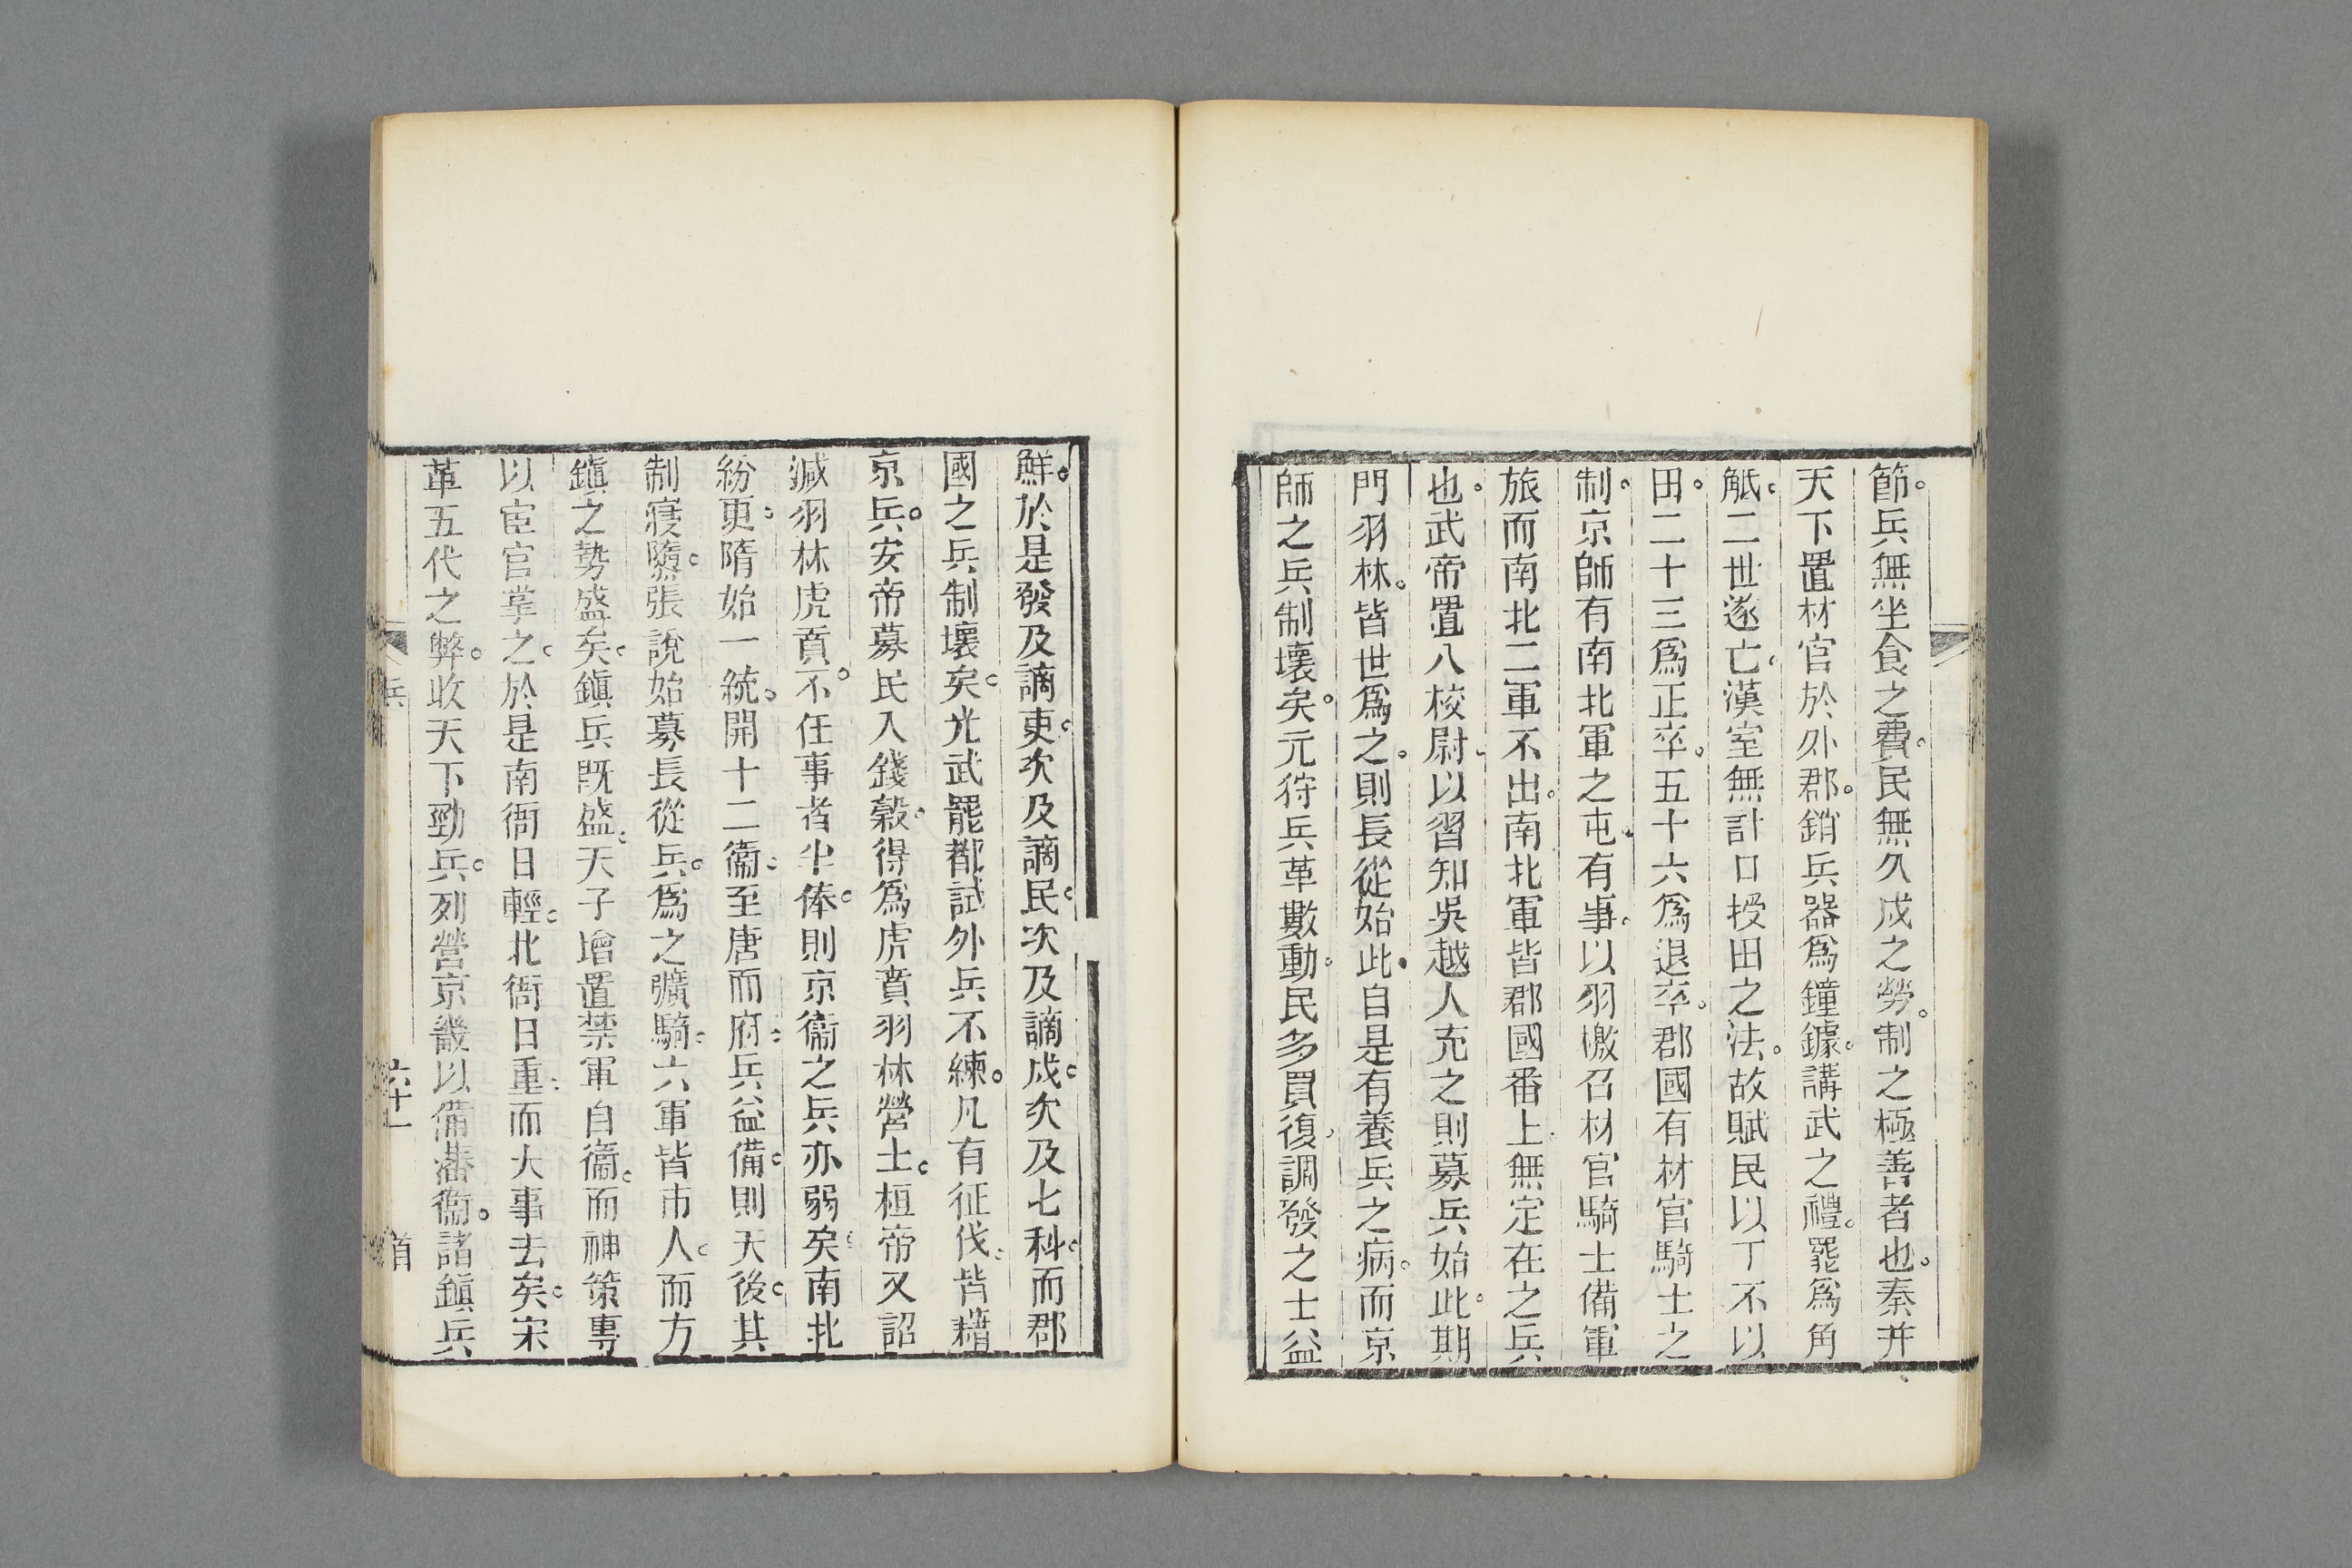 節。兵無坐食之費。民無久戍之勞。制之極善者也。秦并
天下置材官於外郡。銷兵器爲鐘鐻。講武之禮。罷爲角
觝。二世遂亡。漢室無計口授田之法。故賦民以丁不以
田。二十三爲正卒。五十六爲退卒。郡國有材官騎士之
制。京師有南北軍之屯。有事。以羽檄召材官騎士備軍
旅而南北二軍不出。南北軍皆郡國番上。無定在之兵
也。武帝置八校尉。以習知吳越人充之則募兵始此。期
門羽林。皆世爲之。則長從始此。自是有養兵之病。而京
師之兵制壞矣。元狩兵革數動。民多買復。調發之士益
鮮。於是發及謫吏。次及謫民。次及謫戍。次及七科。而郡
國之兵制壞矣。光武罷都試外兵不練。凡有征伐。皆藉
京兵。安帝募民入錢穀。得爲虎賁羽林營士。桓帝又詔
減羽林虎賁。不任事者半俸。則京衞之兵亦弱矣。南北
紛更。隋始一統。開十二衞。至唐而府。兵益備。則天後。其
制寖隳。張說始募長從兵。爲之彍騎。六軍皆市人。而方
鎭之勢盛矣。鎭兵既盛。天子增置禁軍自衞。而神策專
以宦官掌之。於是南衙日輕。北衙日重。而大事去矣。宋
革五代之弊。收天下勁兵。列營京畿以備藩衞。諸鎭兵
兵
六十一
首